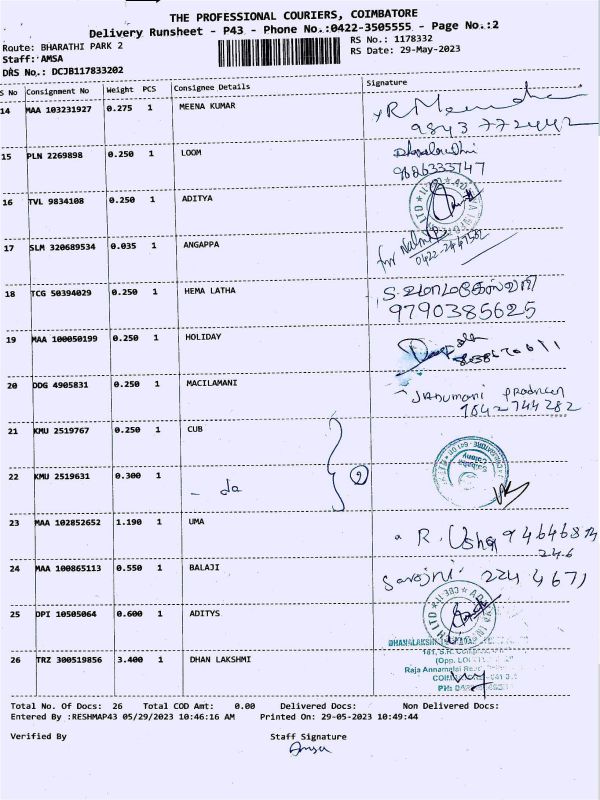 THE PROFESSIONAL COURIERS, COIMBATORE
Delivery Runsheet - P43 - Phone No.:0422-3505555 - Page No.:2
Route: BHARATHI PARK 2
RS No.: 1178332
Staff: AMSA
RS Date: 29-May-2023
DRS No.: DCJB117833202
S No Consignment No Weight PCS Consignee Details Signature
14 MAA 103231927 0.275 1 MEENA KUMAR
9843772442
15 PLN 2269898 0.250 1 LOOM
16 TVL 9834108 0.250 1 ADITYA
17 SLM 320689534 0.035 1 ANGAPPA
for
18 TCG 50394029 0.250 1 HEMA LATHA
9790385625
19 MAA 100050199 0.250 1 HOLIDAY
20 DDG 4905831 0.250 1 MACILAMANI
21 KMU 2519767 0.250 1 CUB
22 KMU 2519631 0.300 1 - da
2
23 MAA 102852652 1.190 1 UMA R. Usha
24 MAA 100865113 0.550 1 BALAJI Sarojni 224 4671
25 DPI 10505064 0.600 1 ADITYS
26 TRZ 300519856 3.400 1 DHAN LAKSHMI
181, S.R.
(Opp.
Raja Annamalai
Total No. Of Docs: 26 Total COD Amt: 0.00 Delivered Docs: Non Delivered Docs:
Entered By :RESHMAP43 05/29/2023 10:46:16 AM Printed On: 29-05-2023 10:49:44
Verified By Staff Signature
Amsa